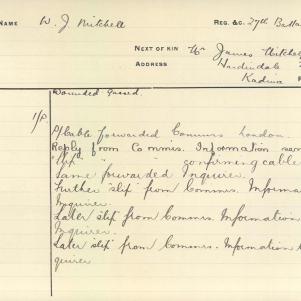 NAME W. J. Mitchell REG. &C. 27th Batta
NEXT OF KIN Mr James Mitchel
ADDRESS
Kadina
Wounded Gassed.
P/Cable forwarded Commrs London.
Reply from Commrs. Information
"Slip" " " confirming cable
Same forwarded Inquirer.
Further "slip" from Commrs. Informa
Inquirer.
Later slip from Commrs. Information
Inquirer.
Later "slip" from Commrs. Information
quirer